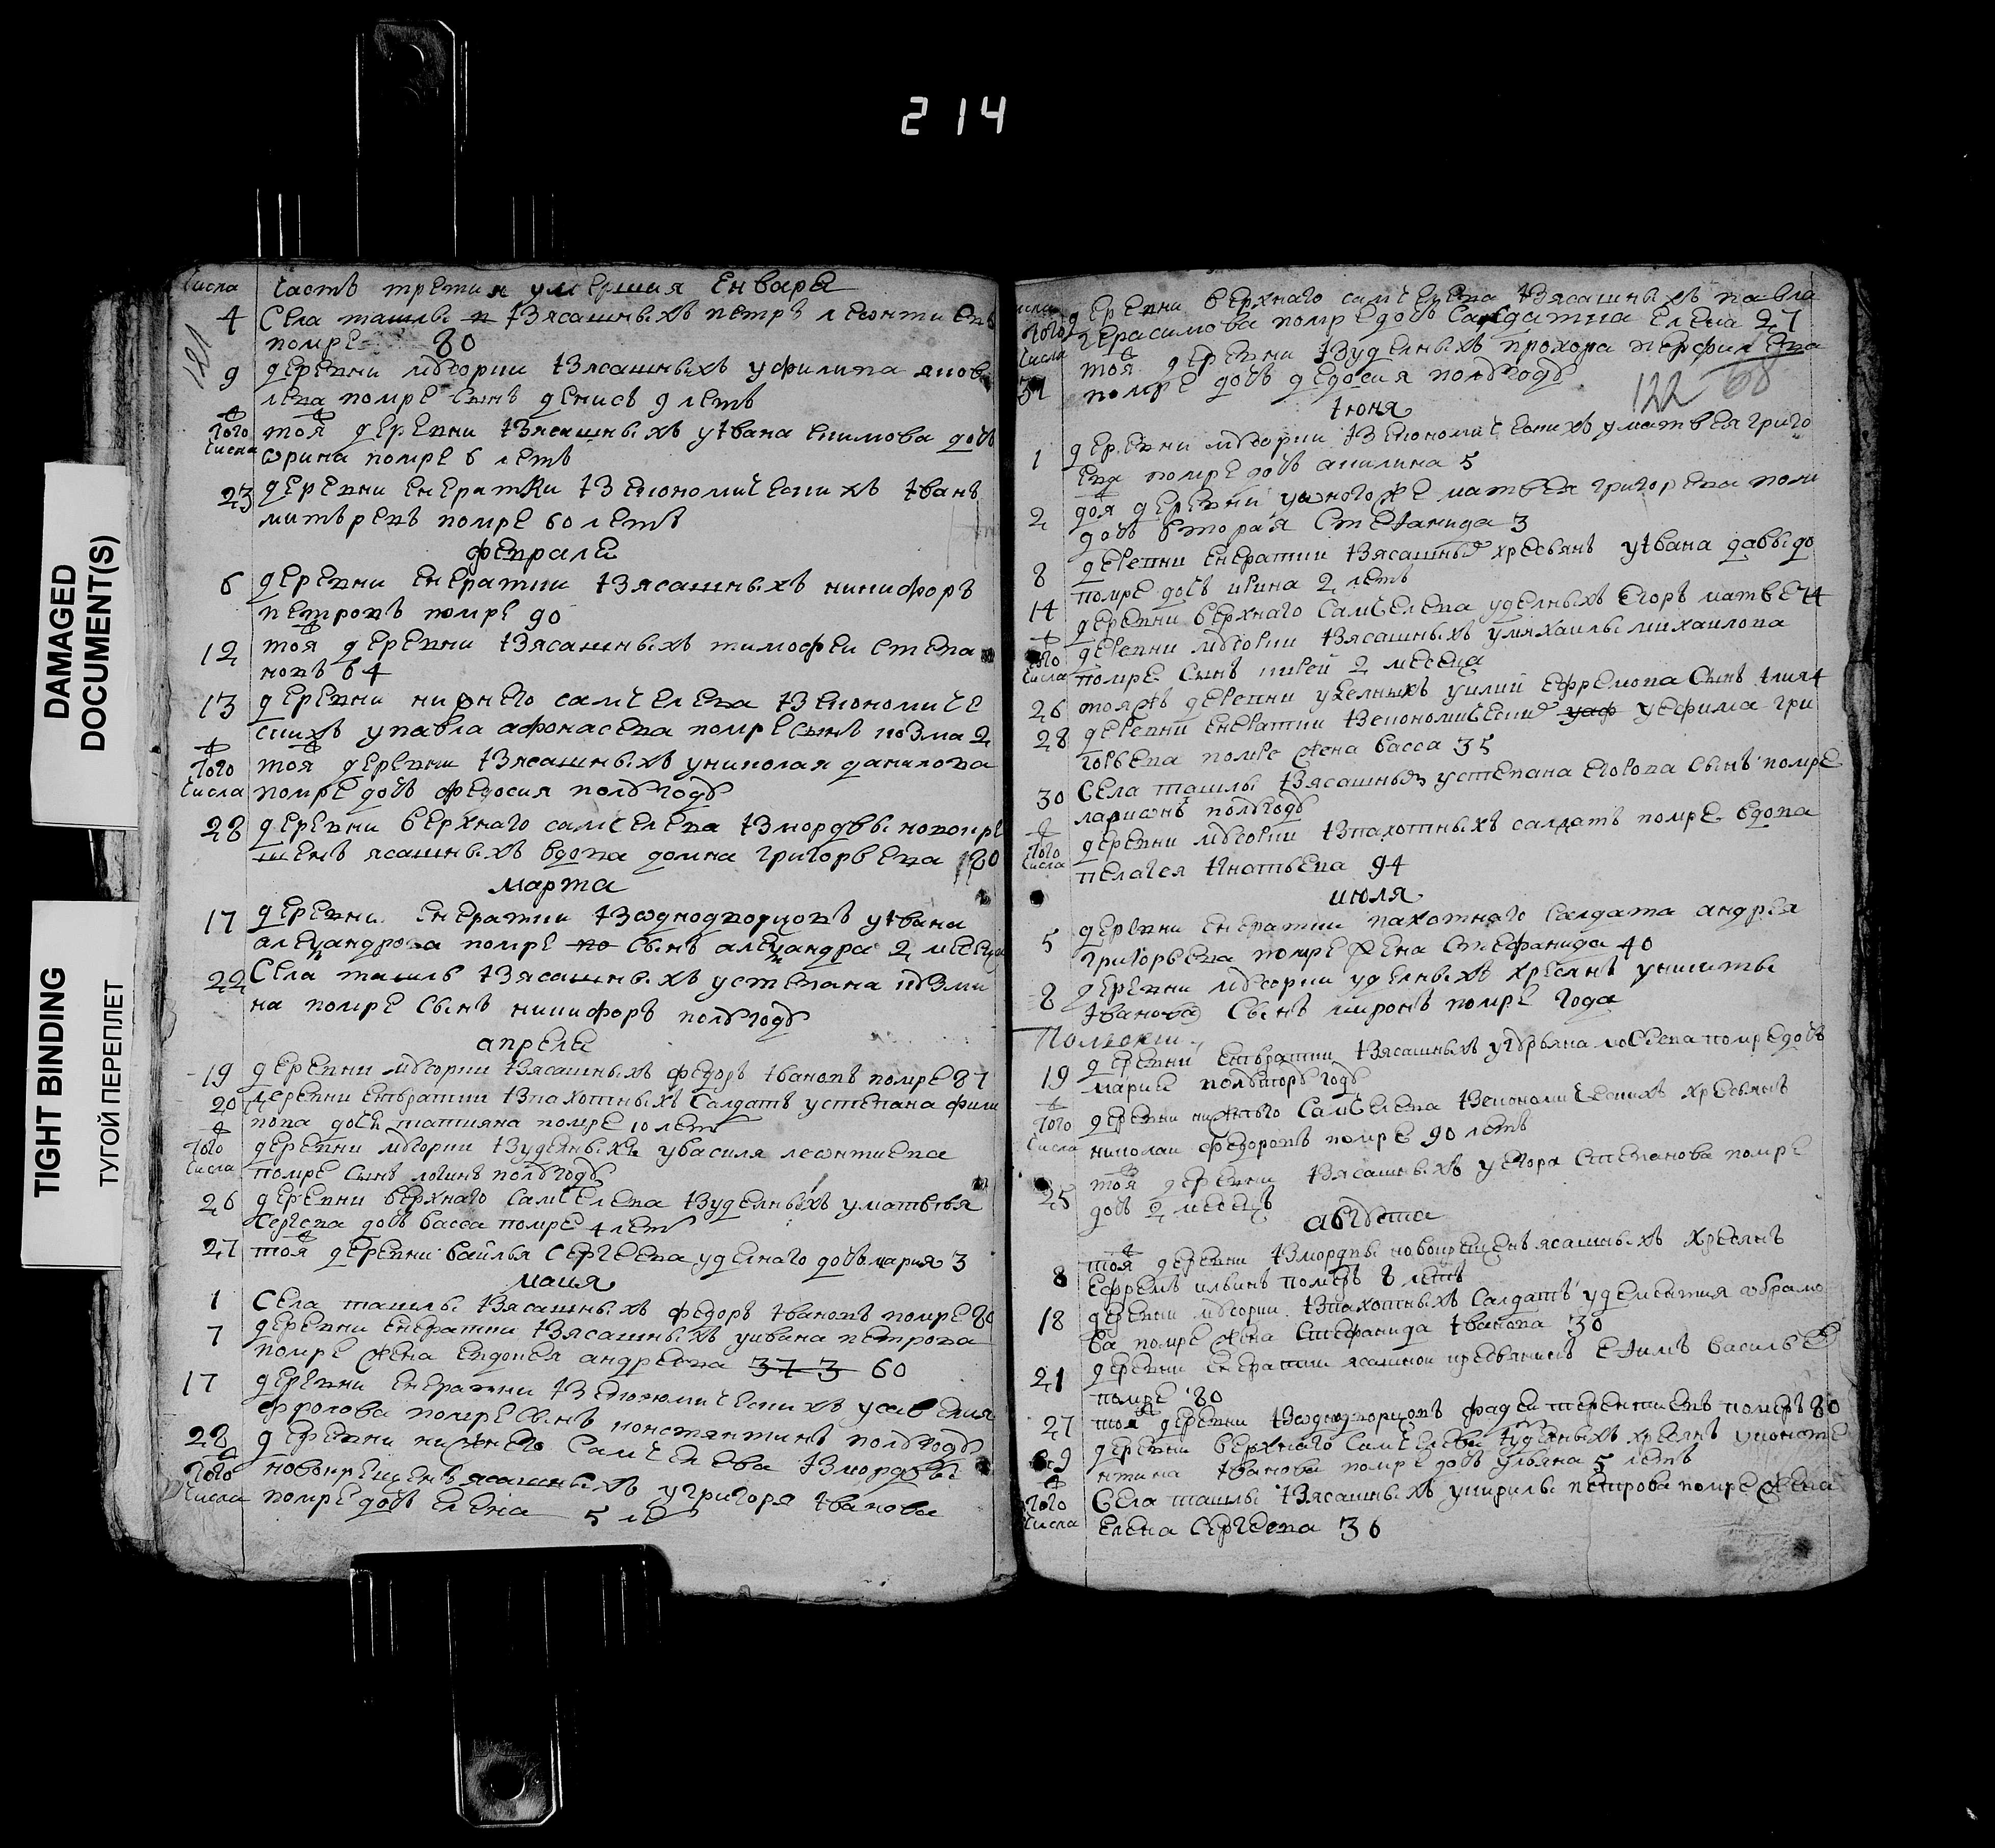 214
DAMAGED
DOCUMENT(S)
TIGHT BINDING
ТУГОЙ ПЕРЕПЛЕТ
121
Числа Часть третия умершия Енваря
4 Села ташлы изясашныхъ петръ леонтиевъ
помре 80
9 деревни мвсорки изясашныхъ уфилипа яков
лева помре сынъ денисъ 9 летъ
того тоя деревни изясашныхъ уивана екимова дочь
числа орина помре 6 летъ
23 деревни енератки изекономическихъ иванъ
митъревъ помре 60 летъ
февраля
6 деревни енератки изясашныхъ никифоръ
петровъ помре 90
12 тоя деревни изясашныхъ тимофеи степа
новъ 64
13 деревни нижнего самчелева изекономиче
скихъ упавла афонасева помре сынъ козма 2
того тоя деревни изясашныхъ униколая данилова
числа помре дочь федосия полъгодъ
28 деревни верхнаго самчелева измордвы новокре
шенъ ясашныхъ вдова домна григорьева 80
марта
17 деревни енератки изоднодворцовъ уивана
александрова помре сынъ александра 2 месеца
22 Села ташлы изясашныхъ устепана кузми
на помре сынъ никифоръ полъгодъ
апреля
19 деревни мвсорки изясашныхъ федоръ ивановъ помре 87
20 деревни енвратки изпахотныхъ салдатъ устепана фили
пова дочь татияна помре 10 летъ
того деревни мвсорки изуделныхъ увасиля леонтиева
числа помре сынъ логинъ полъгодъ
26 деревни верхнаго самчелева изуделныхъ уматвъя
сергева дочь васса помре 4 летъ
27 тоя деревни василья сергеева уделнаго дочь мария 3
маия
1 Села ташлы изясашныхъ федоръ ивановъ помре 80
7 деревни енератки изясашныхъ уивана петрова
помре жена евдокея андревна 60
17 деревни енератки изекономическихъ усавелия
фролова помре сынъ константинъ полъгодъ
28 деревни нижнего самчелева измордвы
того новокрещенъ ясашныхъ угригоря иванова
числа помре дочь елена 5 ле
деревни верхнаго самчелева изясашныхъ павла
того герасимова помре дочь салдатка елена 27
числа тоя деревни изуделныхъ прохора перфилева
31 помре дочь федосия полъгодъ
122 68
июня
1 деревни мвсорки изекономическихъ уматвея григо
ева помре дочь акилина 5
2 тоя деревни уоного же матвея григорева помре
дочь вторая стефанида 3
8 деревни енератки изясашны хресьянъ уивана давыдо
помре дочь ирина 2 летъ
14 деревни верхнаго самчелева уделныхъ егоръ матвеи
того деревни мвсорки изясашныхъ умихаилы михаилова
числа помре сынъ кирей 2 месеца
26 тояжъ деревни уделныхъ уилии ефремова сынъ илия
28 деревни енератки изекономически уефима гри
горьева помре жена васса 35
30 Села ташлы изясашныхъ устепана егорова сынъ помре
ларионъ полъгодъ
того деревни мвсорки изпахотныхъ салдатъ помре вдова
числа пелагея игнатьева 94
июля
5 деревни енератки пахотнаго салдата андрея
григорьева помре жена стефанида 40
8 деревни мвсорки уделныхъ хресянъ уникиты
иванова сынъ миронъ помре года
19 деревни енвратки изясашныхъ помре дочь
мария полъвторъгодъ
того деревни нижнего самчелева изекономическихъ хресьянъ
числа николаи федоровъ помре 90 летъ
25 тоя деревни изясашныхъ уегора степанова помре
дочь 2 месецъ
августа
8 тоя деревни измордвы новокрещенъ ясашныхъ хресянъ
ефремъ ильинъ померъ 8 летъ
18 деревни мвсорки изпахотныхъ салдатъ удементия абрамо
ва помре жена стефанида иванова 30
21 деревни енератки ясашнои кресьянинъ ефимъ василье
помре 80
27 тоя деревни изоднодворцовъ фадеи терентиевъ померъ 80
29 деревни верхнаго самчелева изуделныхъ хресянъ уконста
нтина иванова помре дочь ульяна 5 летъ
того Села ташлы изясашныхъ укирилы петрова помре жена
числа елена сергеева 36